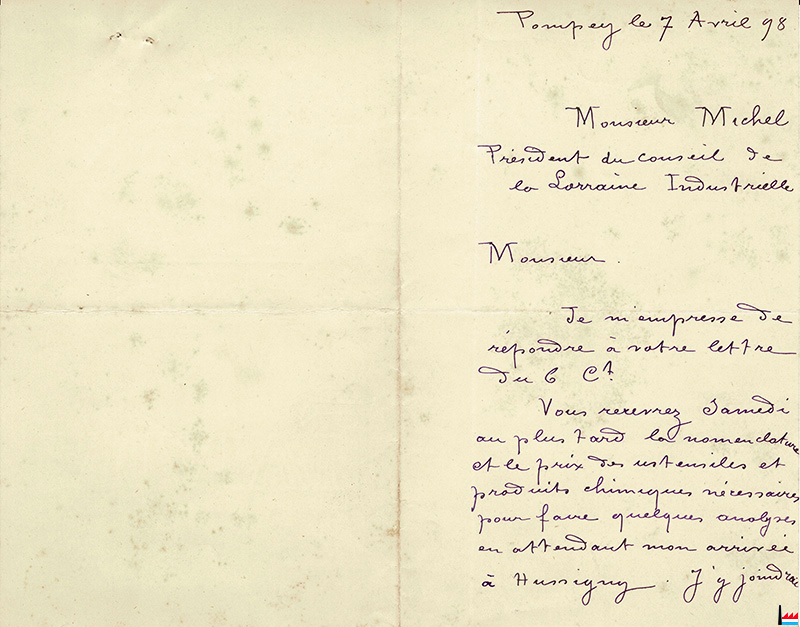 Pompey le 7 Avril 98
Monsieur Michel
Président du conseil de
la Lorraine Industrielle
Monsieur.
Je m'empresse de
répondre à votre lettre
du 6 Ct.
Vous recevrez Samedi
au plus tard la nomenclature
et le prix des ustensiles et
produits chimiques nécessaires
pour faire quelques analyses
en attendant mon arrivée
à Hussigny. J'y joindrai